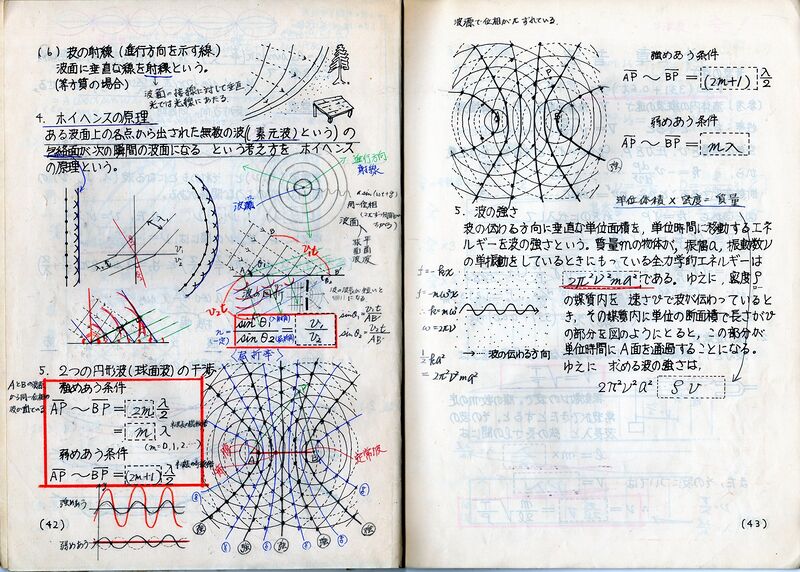 (6) 波の射線 (進行方向を示す線)
波面に垂直な線を射線という。
(等方質の場合)
波面の接線に対して垂直
光では光線にあたる。
4. ホイヘンスの原理
ある波面上の各点から出された無数の波(素元波)という)の
包絡面が次の瞬間の波面になる という考え方を ホイヘンス
の原理という。
進行方向
射線
波源
同一位相
波面
平面波
球面波
v₁t
v₂t
波の回折
sinθ₁ = v₁
sinθ₂ v₂
屈折率
n=
(一定)
sinθ₁ = v₁t
AB
sinθ₂ = v₂t
AB
5. 2つの円形波(球面波)の干渉
強めあう条件
AP ~ BP = 2m λ/2
= m λ
(m=0,1,2…)
弱めあう条件
AP ~ BP = (2m+1) λ/2
強めあう
弱めあう
定常波
A
B
(42)
波源で位相がπずれている.
強めあう条件
AP ~ BP = (2m+1) λ/2
弱めあう条件
AP ~ BP = mλ
単位体積 × 密度 = 質量
5. 波の強さ
波の伝わる方向に垂直な単位面積を, 単位時間に移動するエネ
ルギーを波の強さという。質量mの物体が, 振幅a, 振動数ν
の単振動をしているときにもっている全力学的エネルギーは
2π²ν²ma² である。ゆえに, 密度ρ
の媒質内を 速さvで波が伝わっていると
き, その媒質内に単位の断面積で長さがv
の部分を図のようにとると, この部分が
単位時間に A面を通過することになる。
ゆえに 求める波の強さは,
2π²ν²a² ρv
f = -kx
f = -mω²x
∴ k = mω²
ω = 2πν
½ka²
= 2π²ν²ma²
→ … 波の伝わる方向
(43)